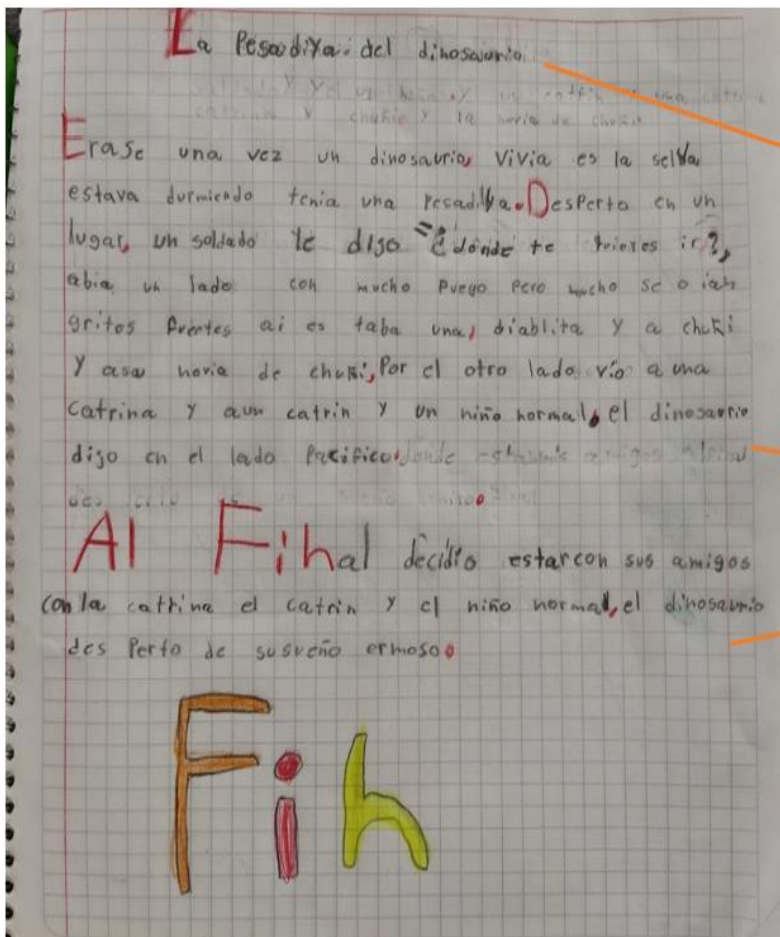 La Pesadiya del dinosaurio
Erase una vez un dinosaurio, vivia es la selva
estava durmiendo tenia una pesadilla. Desperto en un
lugar, un soldado le dijo "¿donde te quieres ir?,
abia un lado con mucho Fuego Pero mucho se o ian
gritos Fuertes ai es taba una, diablita y a chuki
y asu novia de chuki, Por el otro lado vio a una
Catrina y aun catrin y un niño normal, el dinosaurio
dijo en el lado Pacifico
Al Final decidio estar con sus amigos
con la catrina el catrin y el niño normal, el dinosaurio
des Perto de susueño ermoso.
Fin